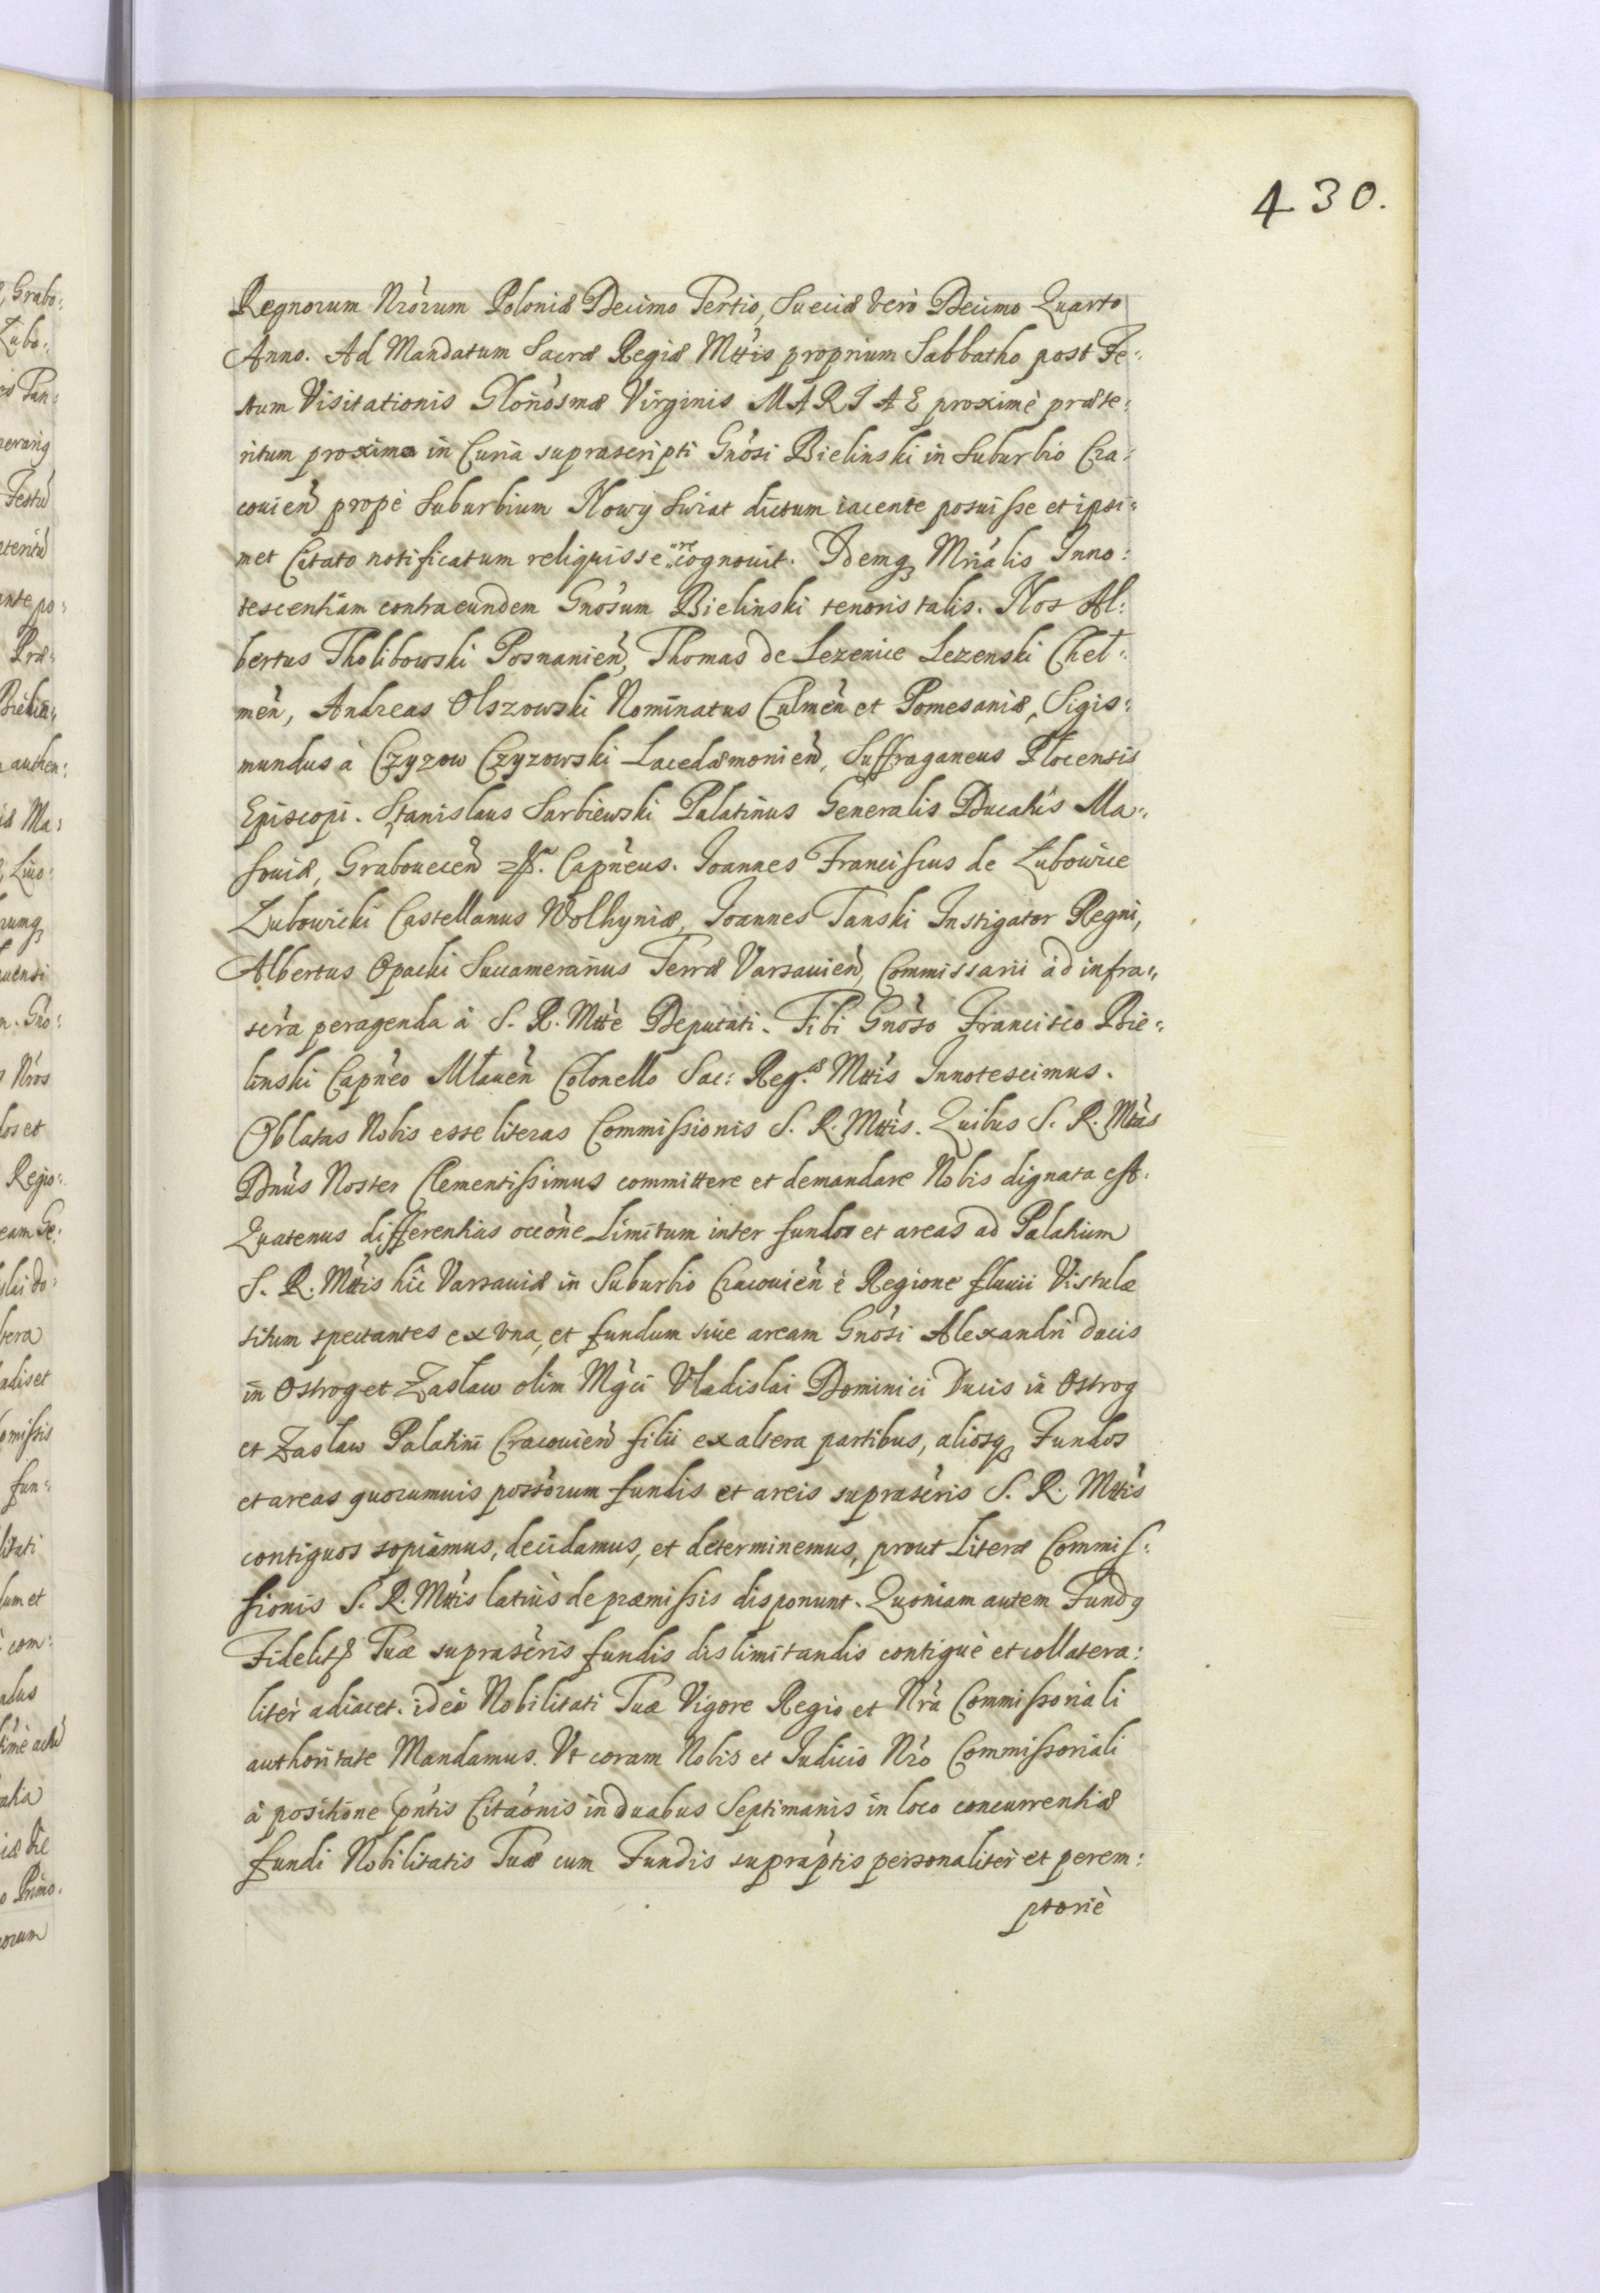 430.
Regnorum Nrorum Poloniæ Decimo Tertio, Sueciæ verò Decimo Quarto
Anno. Ad Mandatum Sacræ Regiæ Mttis proprium Sabbatho post Fe:
stum Visitationis Glorisomæ Virginis MARIAE proximè præte:
ritum proximo in Curia suprascripti Gnosi Bielinski in Suburbio Cra:
couien prope Suburbium Nowy Swiat dictum iacente posuisse et ipsi:
met Citato notificatum reliquisse recognouit. Itemq Mrialis Inno:
tescentiam contra eundem Gnosum Bielinski tenoris talis. Nos Al:
bertus Tholibowski Posnanien, Thomas de Lezenice Lezenski Cheł:
men, Andreas Olszowski Nominatus Culmen et Pomesaniæ, Sigis:
mundus à Czyzow Czyzowski Lacedæmonien, Suffraganeus Plocensis
Episcopi. Stanislaus Sarbiewski Palatinus Generalis Ducatûs Ma:
souiæ, Grabouecen Capneus. Joannes Franciscus de Łubowice
Łubowicki Castellanus Wolhyniæ, Joannes Tanski Instigator Regni,
Albertus Opacki Succamerarius Terræ Varsauien, Commissarii ad infra:
scra peragenda à S. R. Mtte Deputati. Tibi Gnoso Francisco Bie:
linski Capneo Mławen Colonello Sac: Reg.æ Mttis Innotescimus.
Oblatas Nobis esse literas Commissionis S. R. Mttis. Quibus S. R. Mttas
Dnus Noster Clementissimus committere et demandare Nobis dignata est.
Quatenus differentias occone Limitum inter fundos et areas ad Palatium
S. R. Mttis hic Varsauiæ in Suburbio Cracouien è Regione fluuii Vistulæ
situm spectantes ex vna, et fundum siue aream Gnosi Alexandri Ducis
in Ostrog et Zasław olim Mgci Vladislai Dominici Ducis in Ostrog
et Zasław Palatini Cracouien filii ex altera partibus, aliosq Fundos
et areas quorumuis possorum fundis et areis suprascris S. R. Mttis
contiguos sopiamus, decidamus, et determinemus, prout Literæ Commis:
sionis S. R. Mttis latiùs de præmissis disponunt. Quoniam autem Fundg
Fidelit Tuæ suprascris fundis dislimitandis contiguè et collatera:
liter adiacet. ideò Nobilitati Tuæ Vigore Regio et Nra Commissoriali
authoritate Mandamus. Vt coram Nobis et Judicio Nro Commissoriali
à positione pntis Citaonis in duabus Septimanis in loco concurrentiæ
fundi Nobilitatis Tuæ cum Fundis supraptis personaliter et perem:
ptoriè